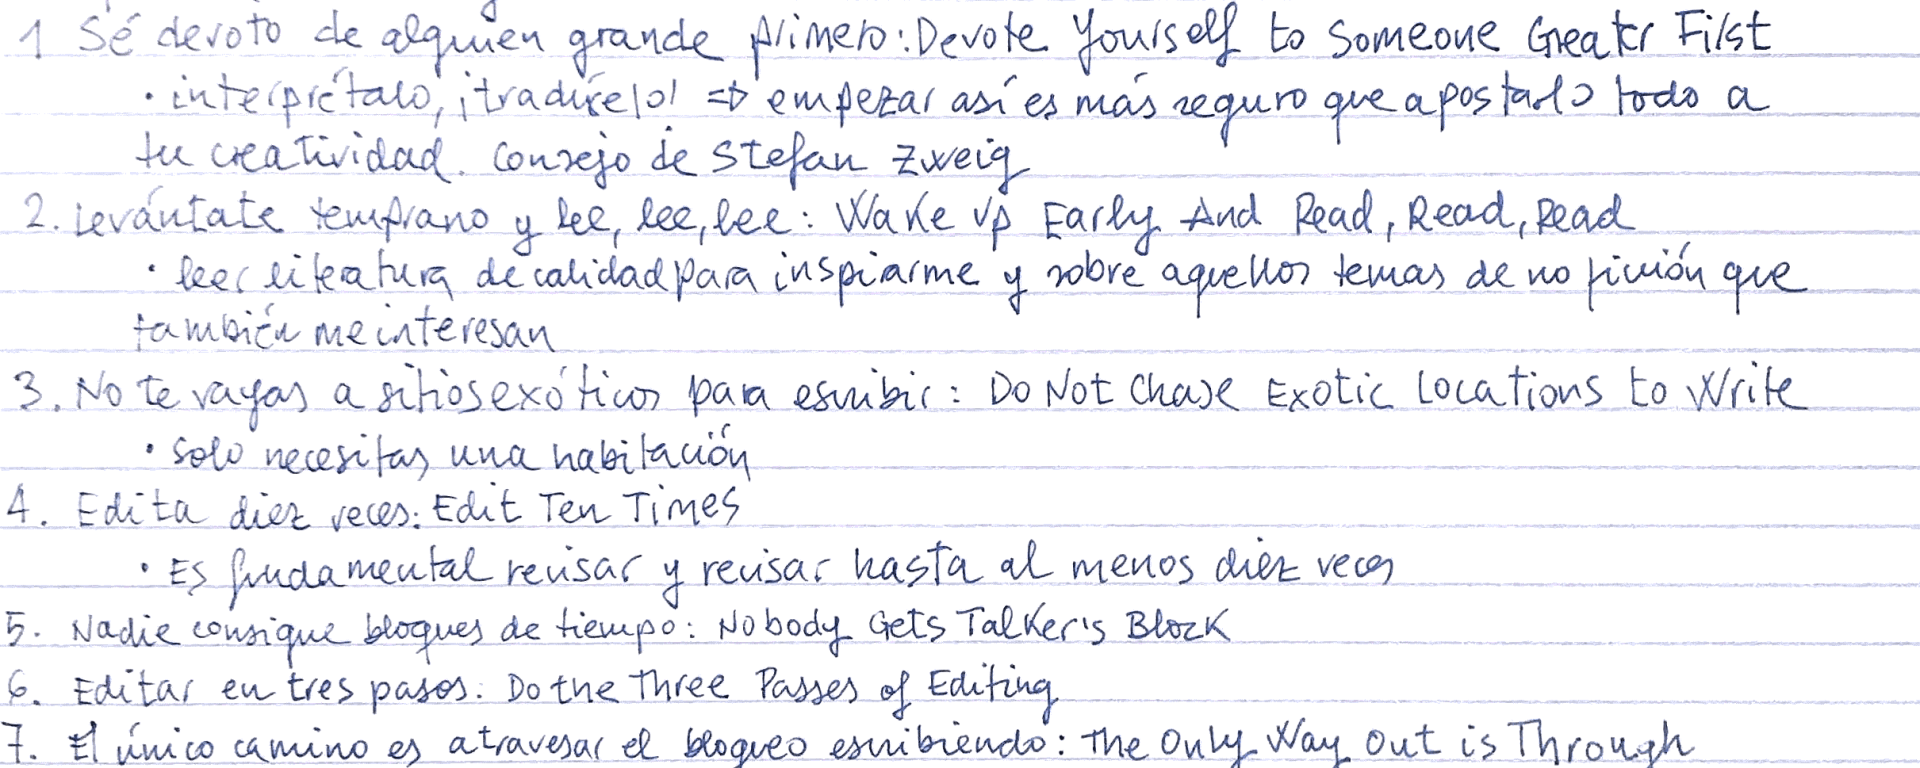 1 Sé devoto de alguien grande primero: Devote Yourself to Someone Greater First
· interprétalo, ¡tradúcelo! => empezar así es más seguro que apostarlo todo a
tu creatividad. Consejo de Stefan Zweig
2. Levántate temprano y lee, lee, lee: Wake Up Early And Read, Read, Read
· leer literatura de calidad para inspirarme y sobre aquellos temas de no ficción que
también me interesan
3. No te vayas a sitios exóticos para escribir: Do Not Chase Exotic Locations to Write
· Solo necesitas una habitación
4. Edita diez veces: Edit Ten Times
· Es fundamental revisar y revisar hasta al menos diez veces
5. Nadie consigue bloques de tiempo: Nobody Gets Talker's Block
6. Editar en tres pasos: Do the Three Passes of Editing
7. El único camino es atravesar el bloqueo escribiendo: The Only Way Out is Through